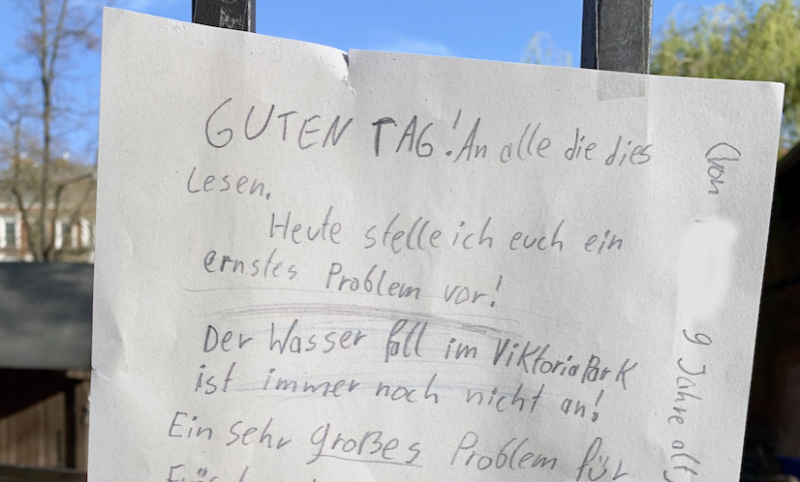 GUTEN TAG! An alle die dies
Lesen.
Heute stelle ich euch ein
ernstes Problem vor!
Der Wasserfall im ViktoriaPark
ist immer noch nicht an!
Ein sehr großes Problem für
(von
9 Jahre alt)